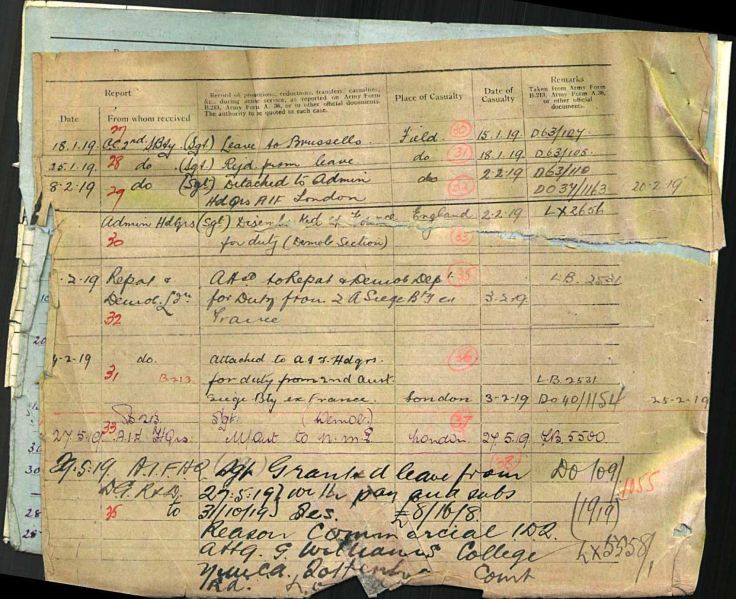 Report
Record of promotions, reductions, transfers, casualties, &c., during active service, as reported on Army Form B.213, Army Form A.36, or in other official documents. The authority to be quoted in each case.
Place of Casualty
Date of Casualty
Remarks
Taken from Army Form B.213, Army Form A.36, or other official documents.
Date
From whom received
27
18.1.19. 2nd S Bty (Sgt) Leave to Brussells. Field 30 15.1.19. D63/107
25.1.19. 28 do (Sgt) Rejd from leave do 31 18.1.19. D63/108
8-2.19 29 do (Sgt) Detached to Admin do 32 2-2.19 D63/110
Hdqrs AIF London DO 37/1163 20-2.19
Admin Hdqrs (Sgt) England 2-2.19 LX2656
30 for duty (Demob Section) 33
2.19 Repat & Attd to Repat & Demob Dept 35 L.B. 2531
Demob for Duty from 2 A Siege Bty ex 3-2-19
32 France
4-2.19 do. attached to A.I.F. Hdqrs. 36
31 B213 for duty from 2nd Aust. L.B. 2531
Siege Bty ex France. London 3-2-19 Do 40/1154 25-2-19
33 B213 Sgt. (Demob) 37
27.5.19 A.I.F. Hqrs. M/Out to N.M.E London 27.5.19 LB.5500
29.5.19 A.I.F.HQ Sgt Granted leave from 38 DO 109/1455
27-5-19 with pay and subs
35 to 31/10/19 £8/16/8. (1919)
Reason Commercial
attg. G. Williams College LX5558/1
Court
Rd.